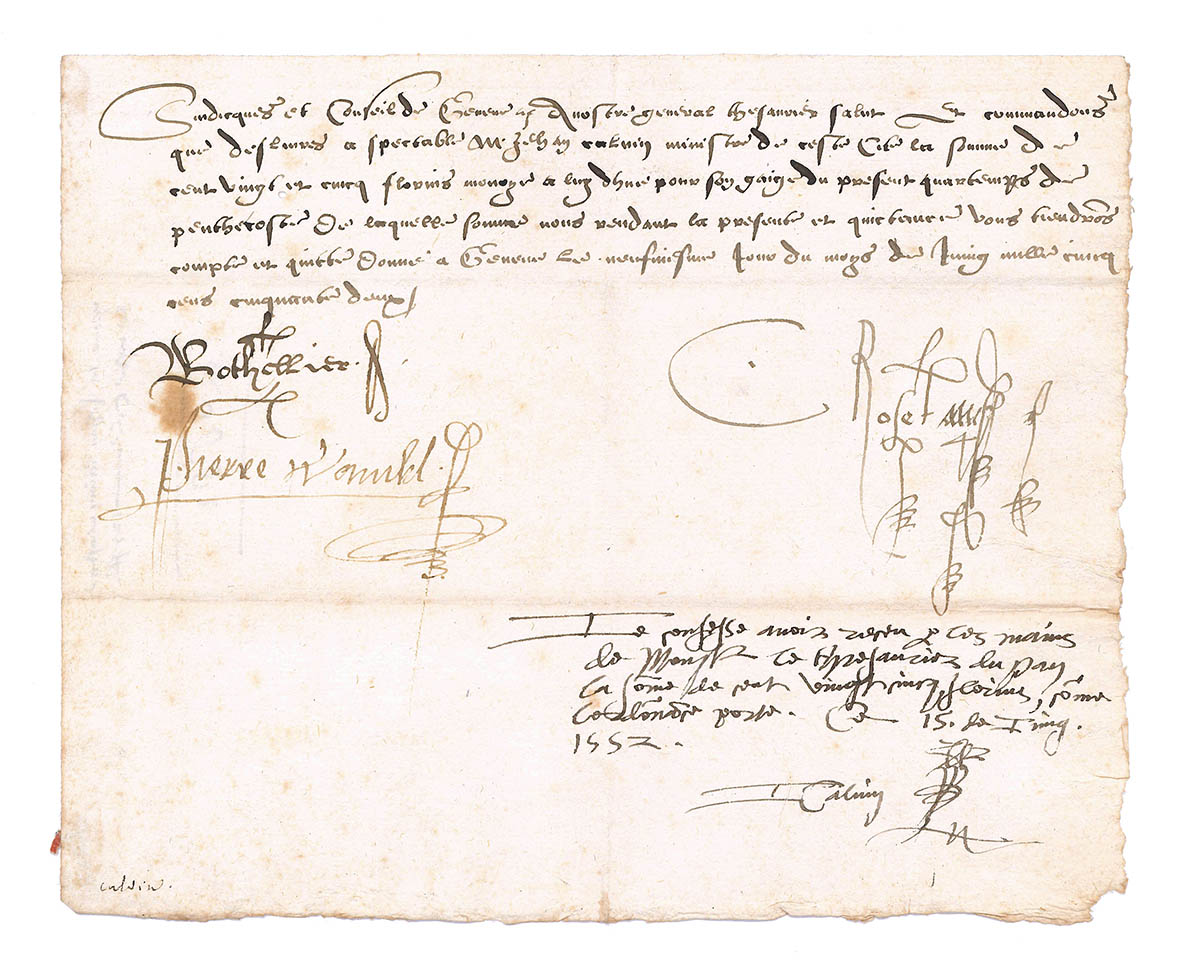 Sindicques et Conseil de Geneve A nostre general thesaurier salut Et commandons
que deslivres a spectable M. Jehan calvin ministre de ceste Cite la somme de
cent vingt et cincq florins monoye a luy dheue pour son gaige du present quartemps de
penthecoste De laquelle somme nous rendant la presente et quictance vous tiendrons
compte et quicte Donne a Geneve le neufviesme Jour du moys de Juing mille cincq
cens cinquante deux
Bothellier
Roset
Pierre
Ie confesse avoir receu par les mains
de Monsr le thresaurier du pan
la sôme de cent vingt cincq florins, côme
lordônâce porte. Ce 15. de Iuing.
1552.
I Calvin
calvin.